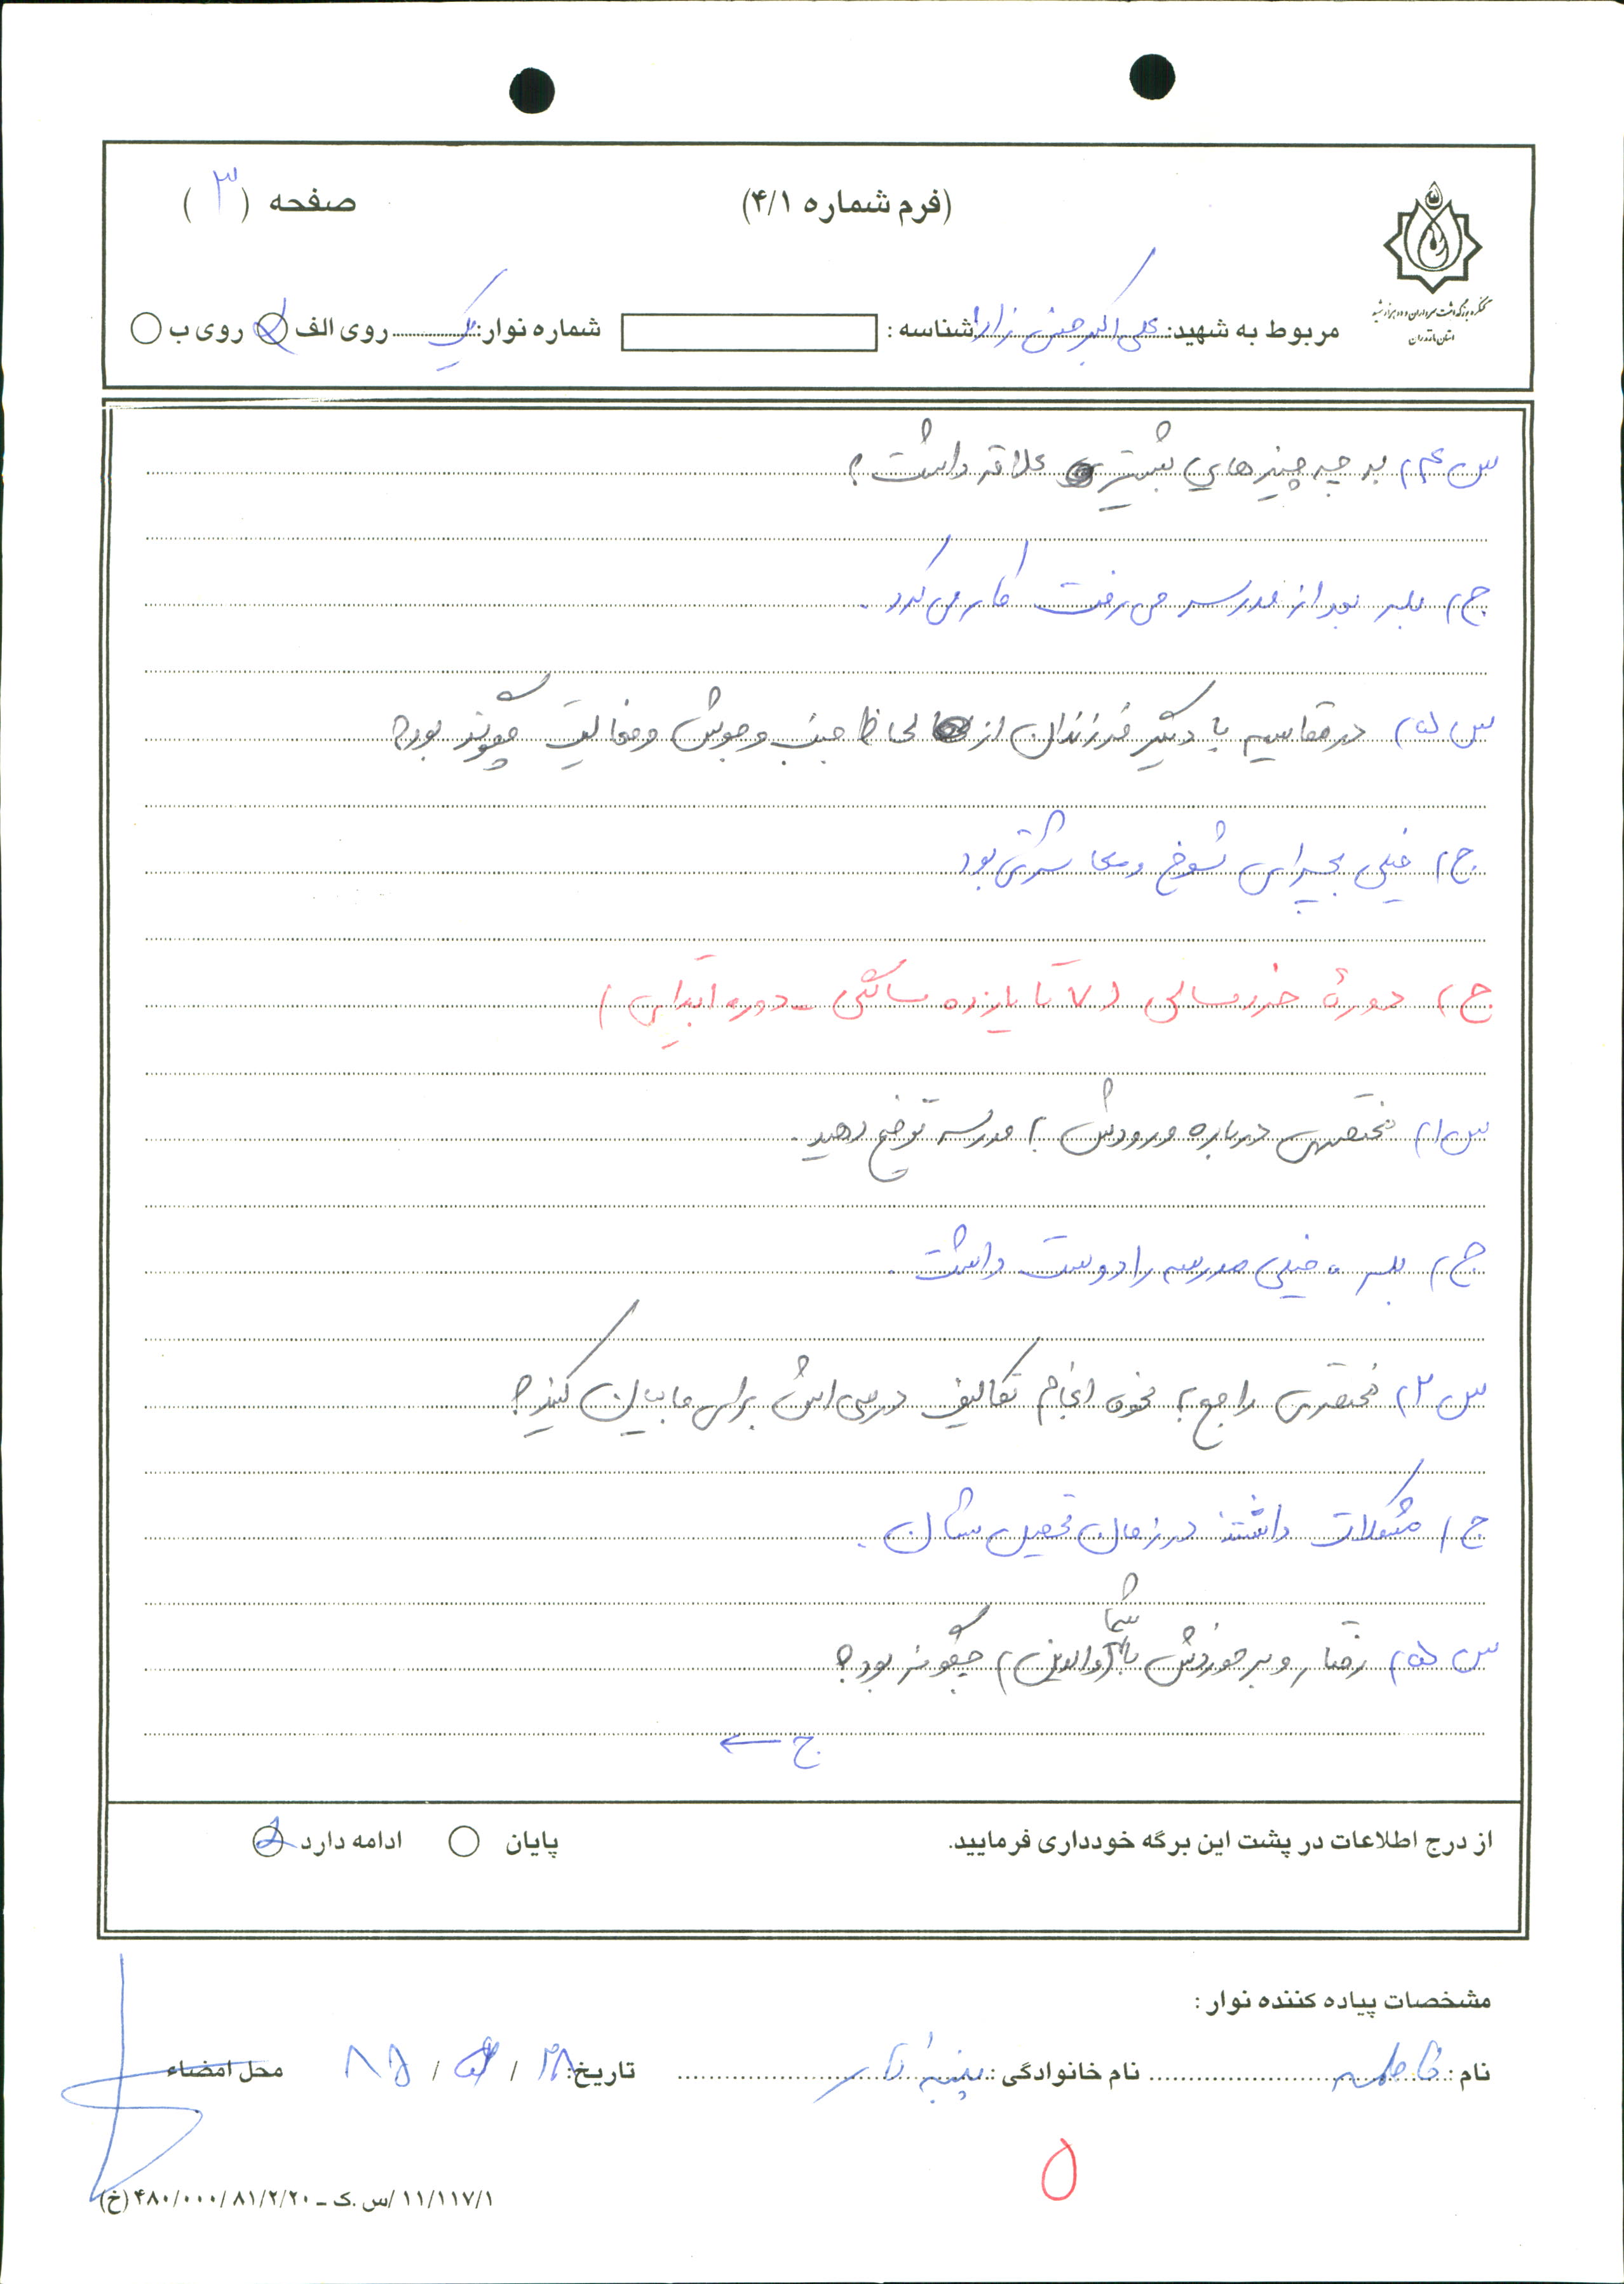 (فرم شماره ۴/۱)
صفحه (۳)
کنگره بزرگداشت سرداران و ده هزار شهید
استان مازندران
مربوط به شهید: علی اکبر حسن زاده شناسه : شماره نوار: یک روی الف روی ب
س ۴) به چه چیزهایی بیشتر علاقه داشت؟
ج) بله بعد از مدرسه می رفت کار می کرد.
س ۵) در مقایسه با دیگر فرزندان از لحاظ جنب و جوش و فعالیت چگونه بود؟
ج) خیلی بچه ای شوخ و معاشرتی بود
ج) دورهٔ خردسالی (۷ تا یازده سالگی - دوره ابتدایی)
س ۱) مختصری درباره ورودش به مدرسه توضیح دهید.
ج) بله، خیلی مدرسه را دوست داشت.
س ۲) مختصری راجع به نحوه انجام تکالیف درسی اش برای ما بیان کنید؟
ج) مشکلات داشتند در زمان تحصیل شان.
س ۵) رفتار و برخوردش با شما (والدین) چگونه بود؟
ج ←
از درج اطلاعات در پشت این برگه خودداری فرمایید.
ادامه دارد پایان
مشخصات پیاده کننده نوار :
نام : فاطمه نام خانوادگی : تاریخ: ۲۸ / / ۸۵ محل امضاء
۵
۱۱/۱۱۷/۱ /س .ک – ۴۸۰/۰۰۰/ ۸۱/۲/۲۰ (خ)